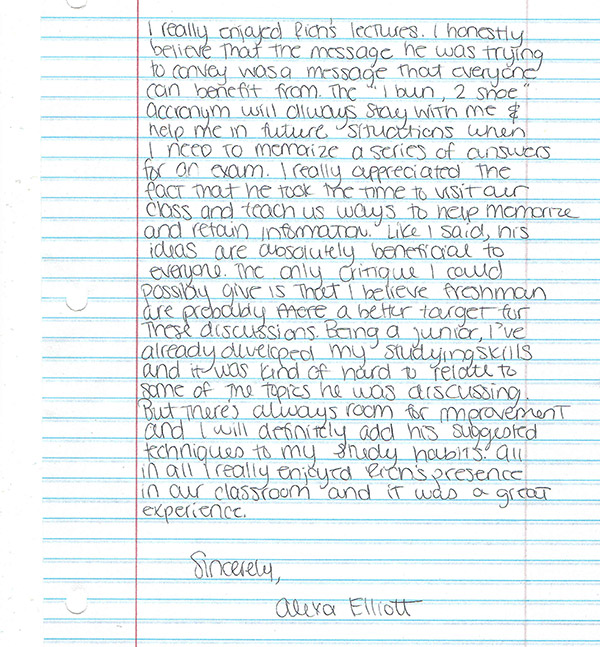 I really enjoyed Rich's lectures. I honestly
believe that the message he was trying
to convey was a message that everyone
can benefit from. The "1 bun, 2 shoe"
accronym will always stay with me &
help me in future situations when
I need to memorize a series of answers
for an exam. I really appreciated the
fact that he took the time to visit our
class and teach us ways to help memorize
and retain information. Like I said, his
ideas are absolutely beneficial to
everyone. The only critique I could
possibly give is that I believe freshman
are probably more a better target for
these discussions. Being a junior, I've
already developed my studying skills
and it was kind of hard to relate to
some of the topics he was discussing.
But there's always room for improvement
and I will definitely add his suggested
techniques to my study habits. All
in all I really enjoyed Rich's presence
in our classroom and it was a great
experience.
Sincerely,
Alexa Elliott